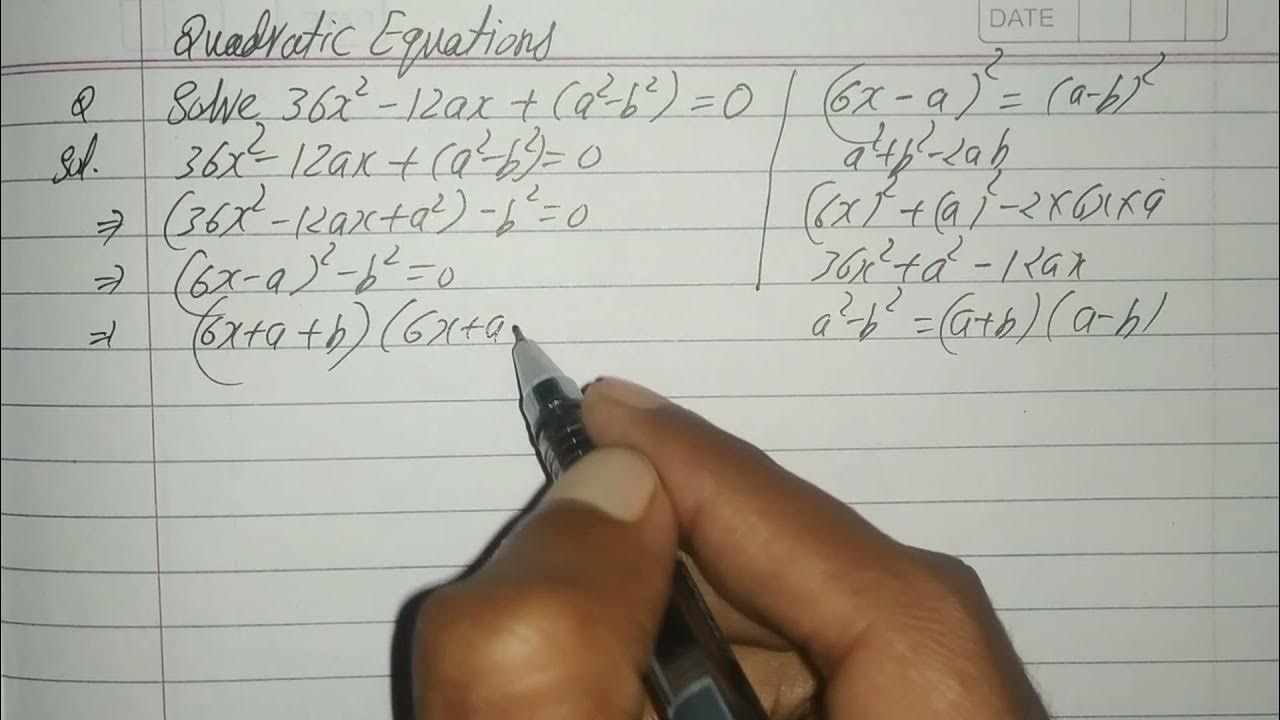 DATE
Quadratic Equations
Q Solve 36x² - 12ax + (a²-b²) = 0
Sol. 36x² - 12ax + (a²-b²) = 0
⇒ (36x² - 12ax + a²) - b² = 0
⇒ (6x - a)² - b² = 0
⇒ (6x + a + b) (6x + a
(6x - a)² = (a-b)²
a² + b² - 2ab
(6x)² + (a)² - 2 × 6x × a
36x² + a² - 12ax
a² - b² = (a+b) (a-b)